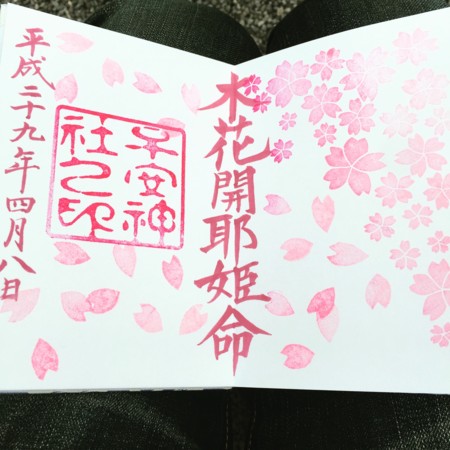 木花開耶姫命
子安神
社之印
平成二十九年四月八日